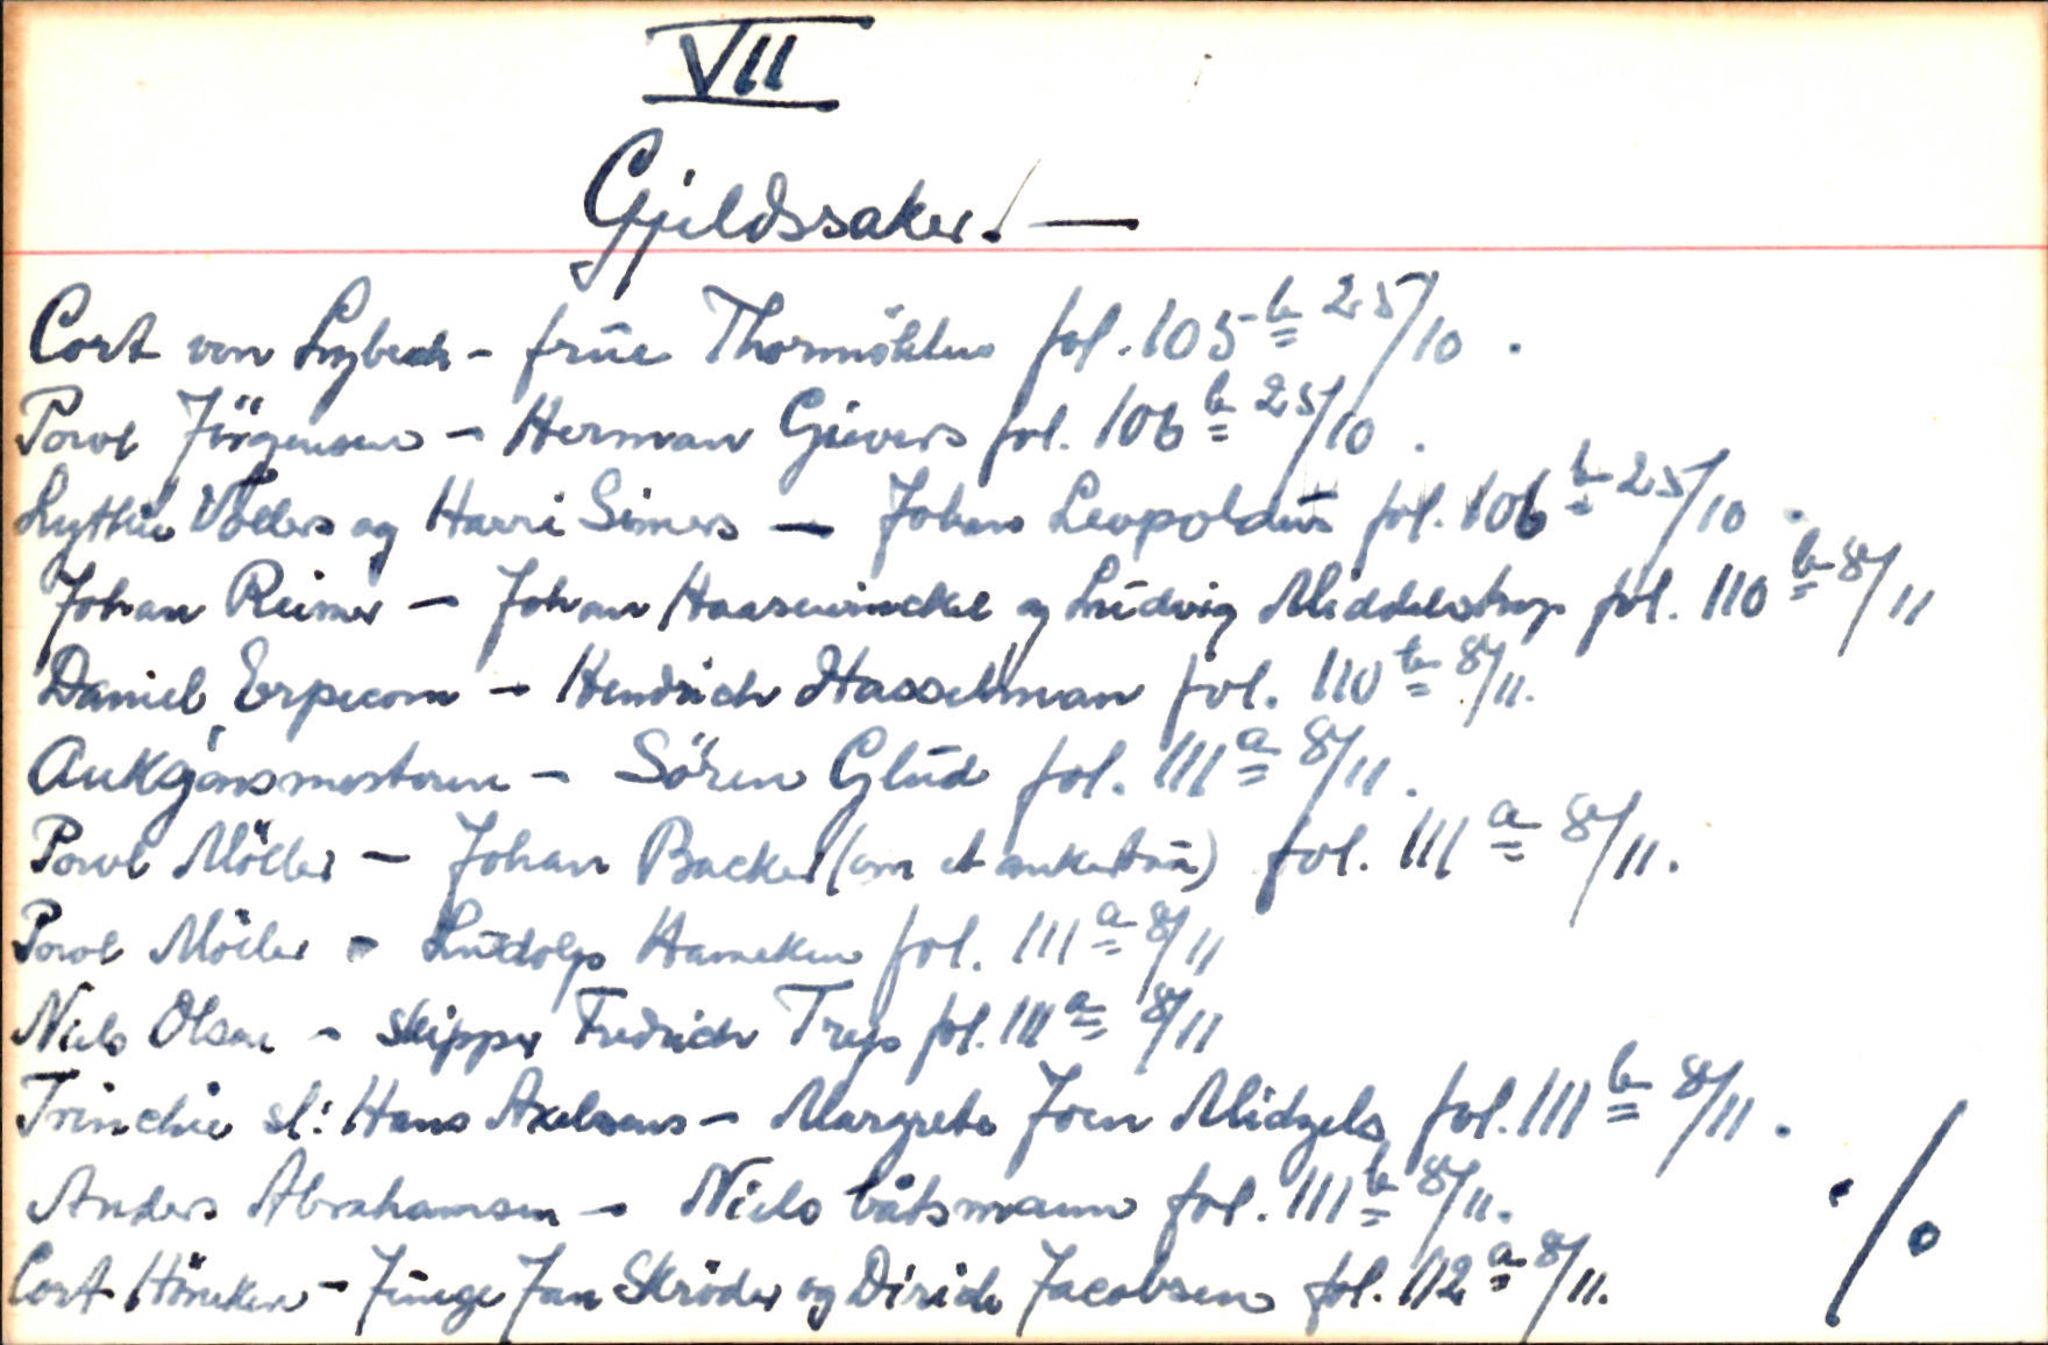 VII
Gjeldssaker. —
Cort von Lybech - frue Thormöhlen fol. 105 b 25/10.
Powl Jörgensen - Herman Gievers fol. 106 b 25/10.
Lythie Vollers og Harri Simers - Johan Leopoldus fol. 106 b 25/10.
Johan Reimer - Johan Haasewinckel og Ludvig Middelstrop fol. 110 b 8/11
Daniel Erpecom - Hendrich Hasselman fol. 110 b 8/11.
- Sören Glud fol. 111 a 8/11.
Powl Möller - Johan Backer (om et ankertau) fol. 111 a 8/11.
Powl Möller - Ludolp Hameken fol. 111 a 8/11
Niels Olsen - skipper Fredrich Trep fol. 111 a 8/11
Trinchie sl: Hans Axelsens - Margrete Joen Midzels fol. 111 b 8/11.
Anders Abrahamsen - Niels båtsmann fol. 111 b 8/11.
Cort Höneken - Junge Jan Skröder og Dirich Jacobsen fol. 112 a 8/11.
./.